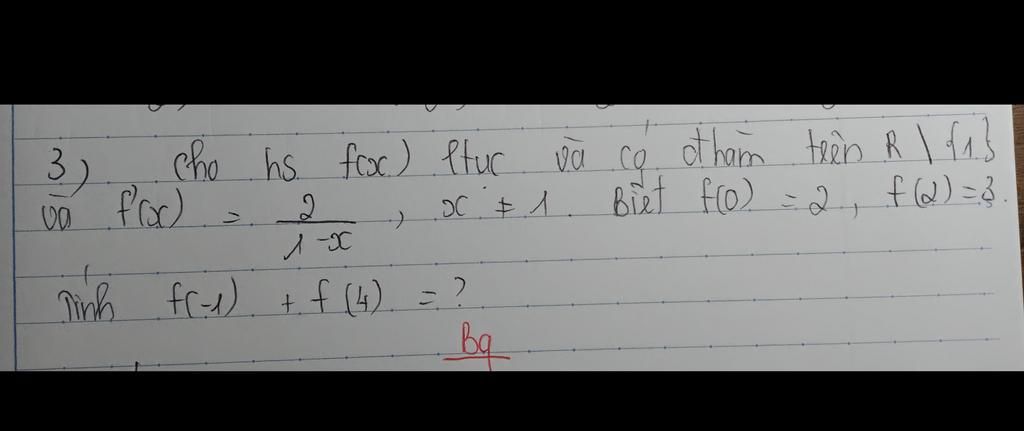 3) Cho hs f(x) ltục và có đhàm trên R \ {1}
và f'(x) = 2/(1-x), x ≠ 1. Biết f(0) = 2, f(2)=3.
Tính f(-1) + f(4) = ?
Bg